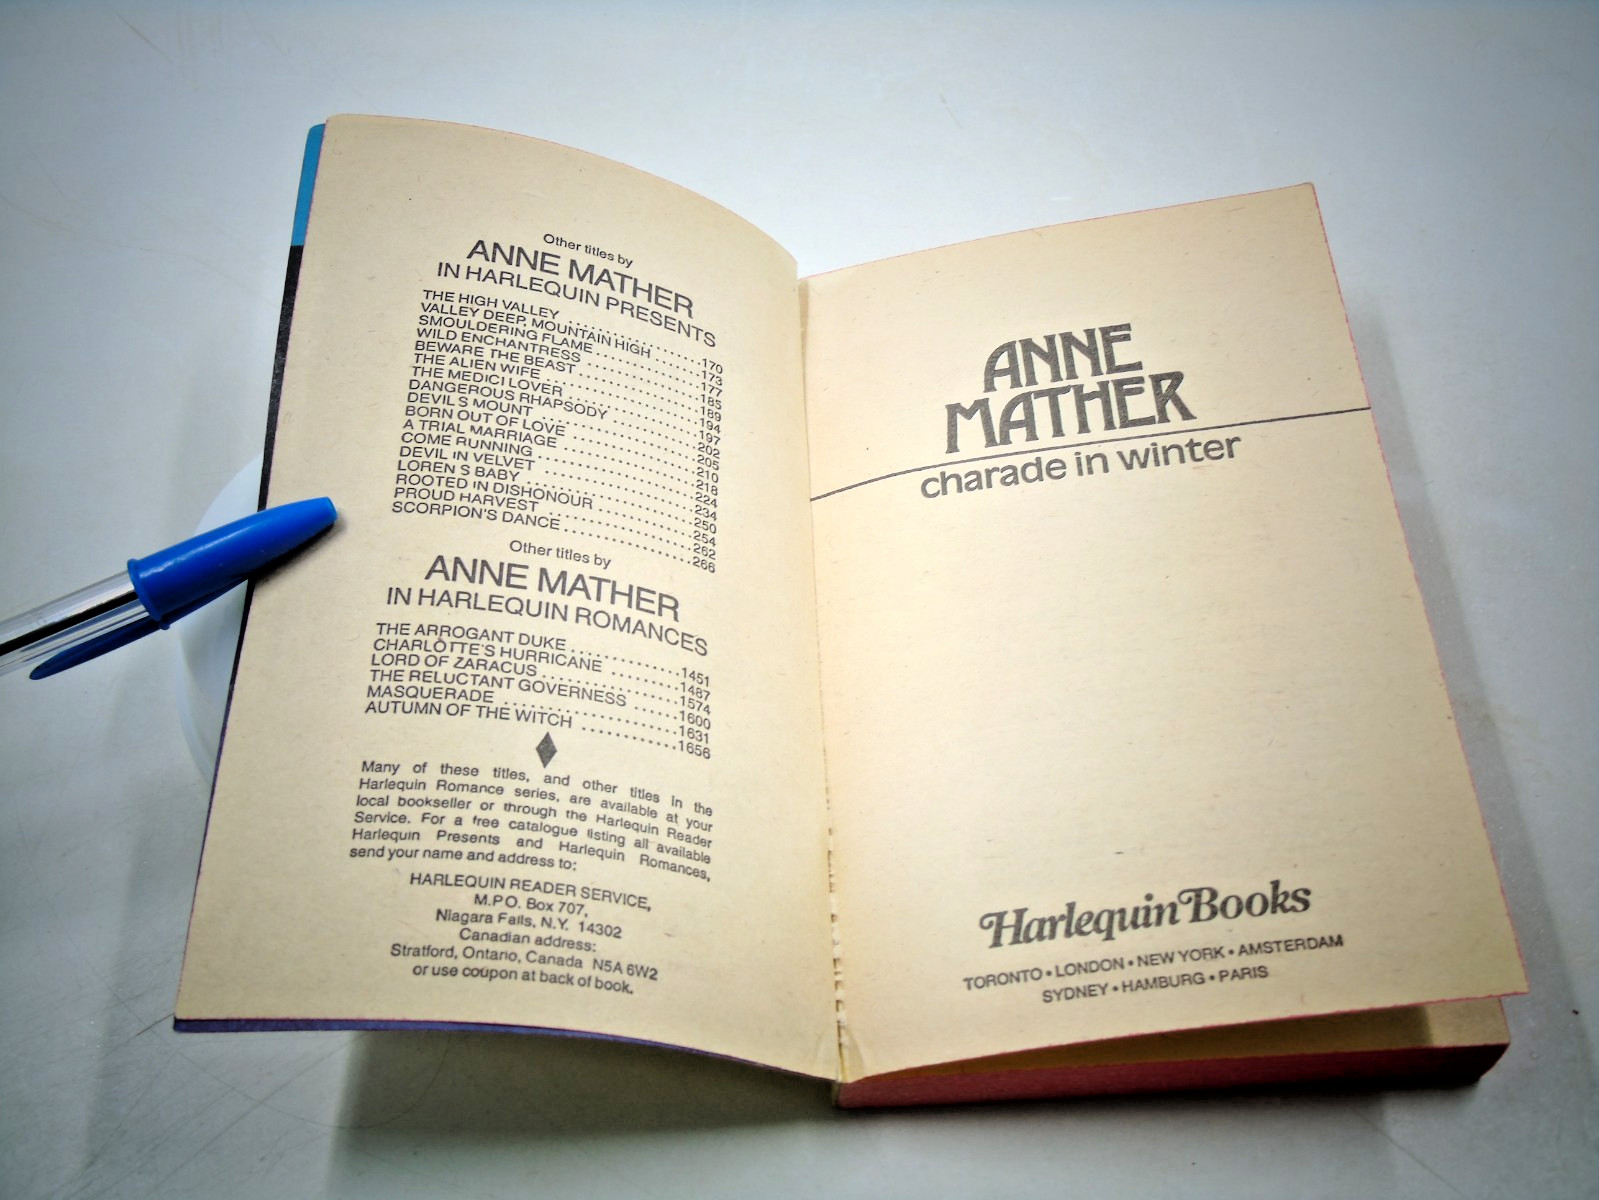 Other titles by
ANNE MATHER
IN HARLEQUIN PRESENTS
THE HIGH VALLEY ................ 170
VALLEY DEEP, MOUNTAIN HIGH ....... 173
SMOULDERING FLAME ............... 177
WILD ENCHANTRESS ................ 185
BEWARE THE BEAST ................ 189
THE ALIEN WIFE .................. 194
THE MEDICI LOVER ................ 197
DANGEROUS RHAPSODY .............. 202
DEVIL'S MOUNT ................... 205
BORN OUT OF LOVE ................ 210
A TRIAL MARRIAGE ................ 218
COME RUNNING .................... 224
DEVIL IN VELVET ................. 234
LOREN'S BABY .................... 250
ROOTED IN DISHONOUR ............. 254
PROUD HARVEST ................... 262
SCORPION'S DANCE ................ 266
Other titles by
ANNE MATHER
IN HARLEQUIN ROMANCES
THE ARROGANT DUKE ............... 1451
CHARLOTTE'S HURRICANE ........... 1487
LORD OF ZARACUS ................. 1574
THE RELUCTANT GOVERNESS ......... 1600
MASQUERADE ...................... 1631
AUTUMN OF THE WITCH ............. 1656
Many of these titles, and other titles in the
Harlequin Romance series, are available at your
local bookseller or through the Harlequin Reader
Service. For a free catalogue listing all available
Harlequin Presents and Harlequin Romances,
send your name and address to:
HARLEQUIN READER SERVICE,
M.P.O. Box 707,
Niagara Falls, N.Y. 14302
Canadian address:
Stratford, Ontario, Canada N5A 6W2
or use coupon at back of book.
ANNE
MATHER
charade in winter
Harlequin Books
TORONTO • LONDON • NEW YORK • AMSTERDAM
SYDNEY • HAMBURG • PARIS